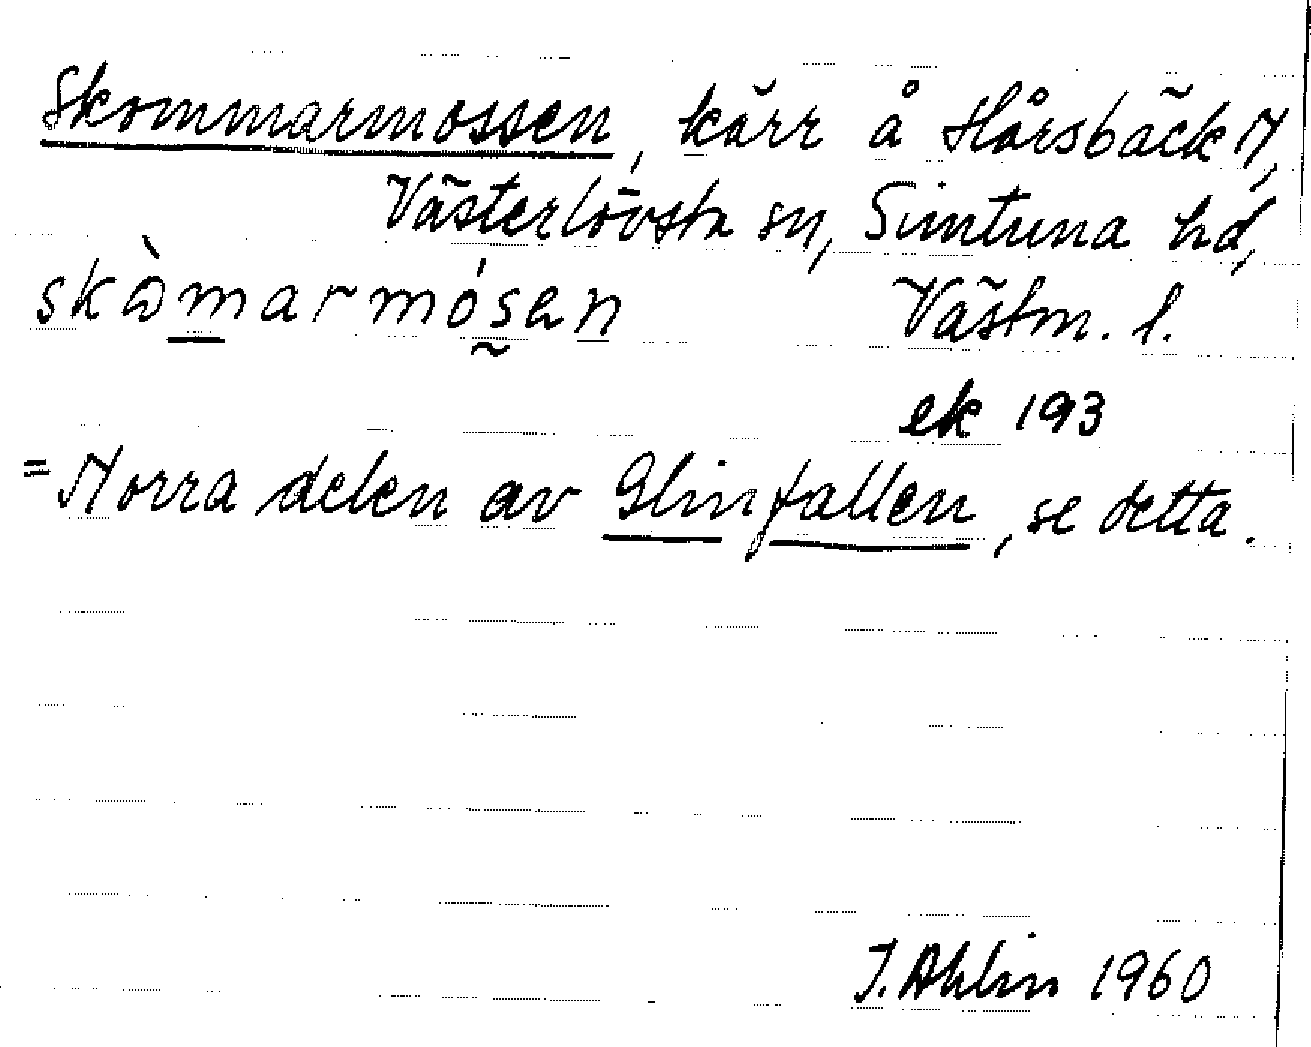 Skommarmossen, kärr å Hårsbäck N,
Västerlövsta sn, Simtuna hd,
skòmarmósen Västm. l.
ek 193
= Norra delen av Glinfallen, se detta.
J. Ahlin 1960